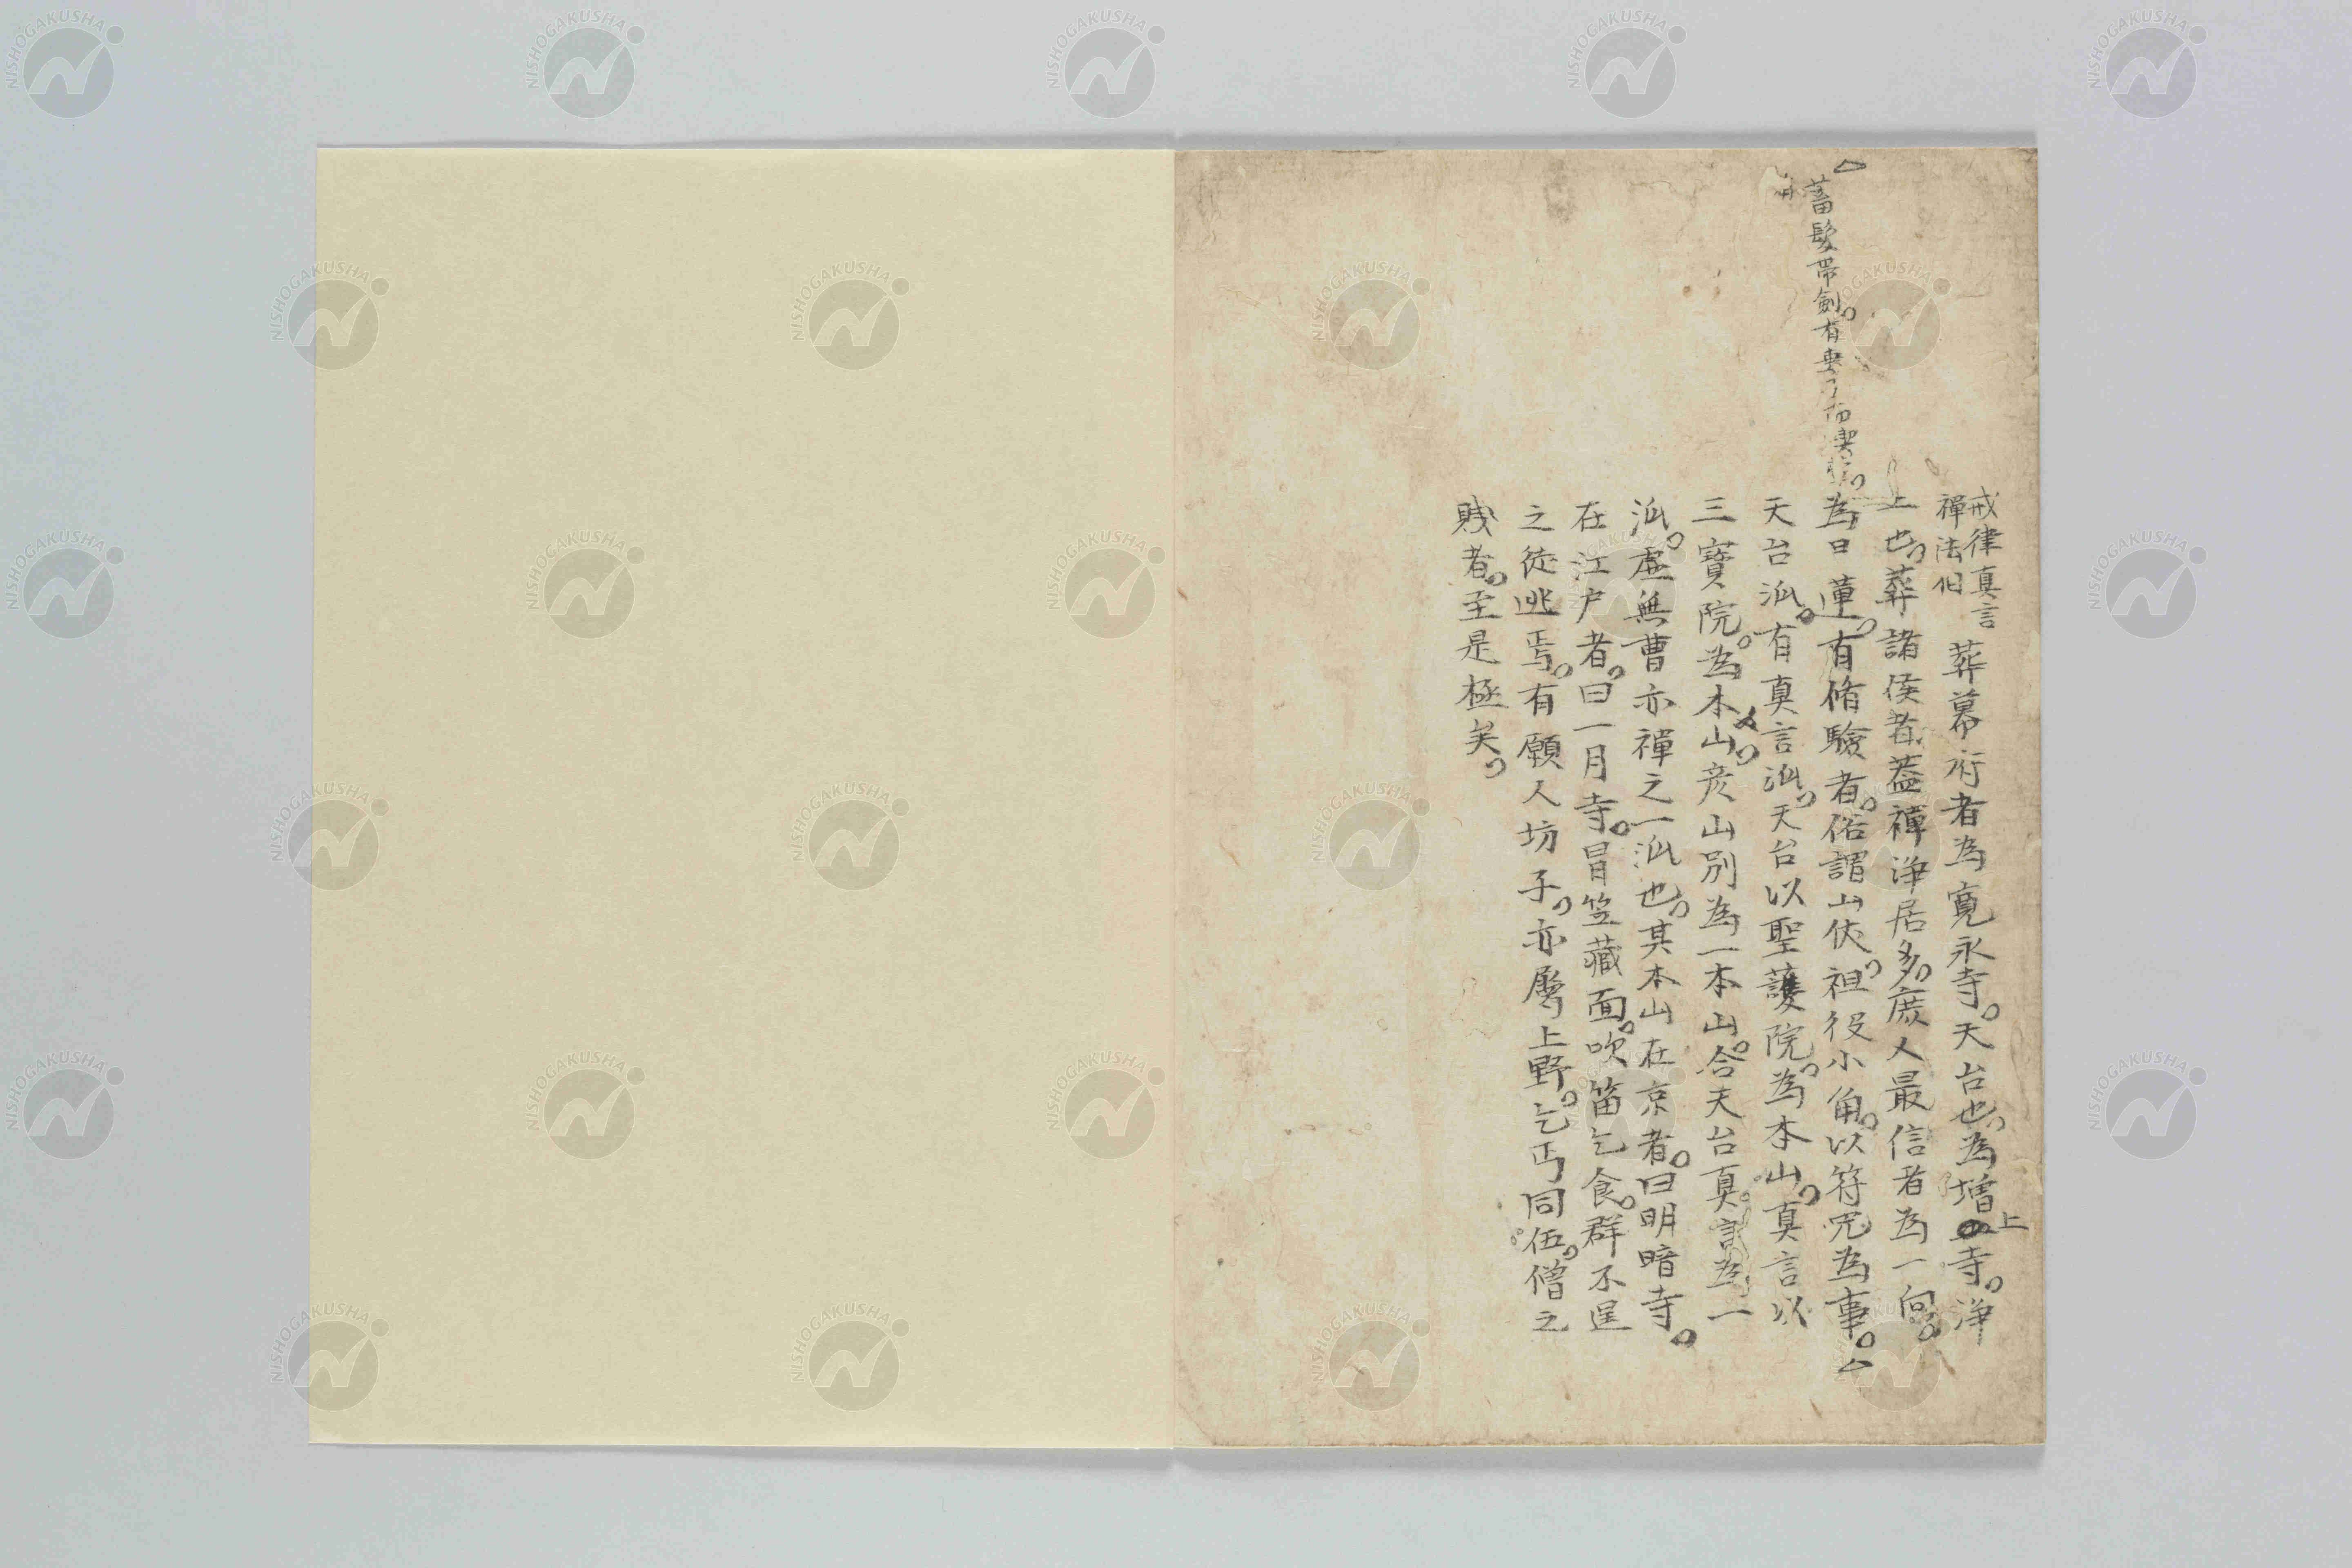 戒律真言
禪法相
葬幕府者為寛永寺。天台也。為增上寺。浄
土也。葬諸侯者。蓋禪浄居多。庶人最信者為一向。
為日蓮。有脩驗者。俗謂山伏。祖役小角。以符咒為事。
蓄髮帶劍。有妻子而
天台派。有真言派。天台以聖護院。為本山。真言以
三寶院。為本山。彦山別為一本山。合天台真言為一
派。虚無曹亦禪之一派也。其本山在京者。曰明暗寺。
在江戸者。曰一月寺。冒笠藏面。吹笛乞食。群不逞
之徒逃焉。有願人坊子。亦屬上野。乞丐同伍。僧之
賤者。至是極矣。
NISHOGAKUSHA